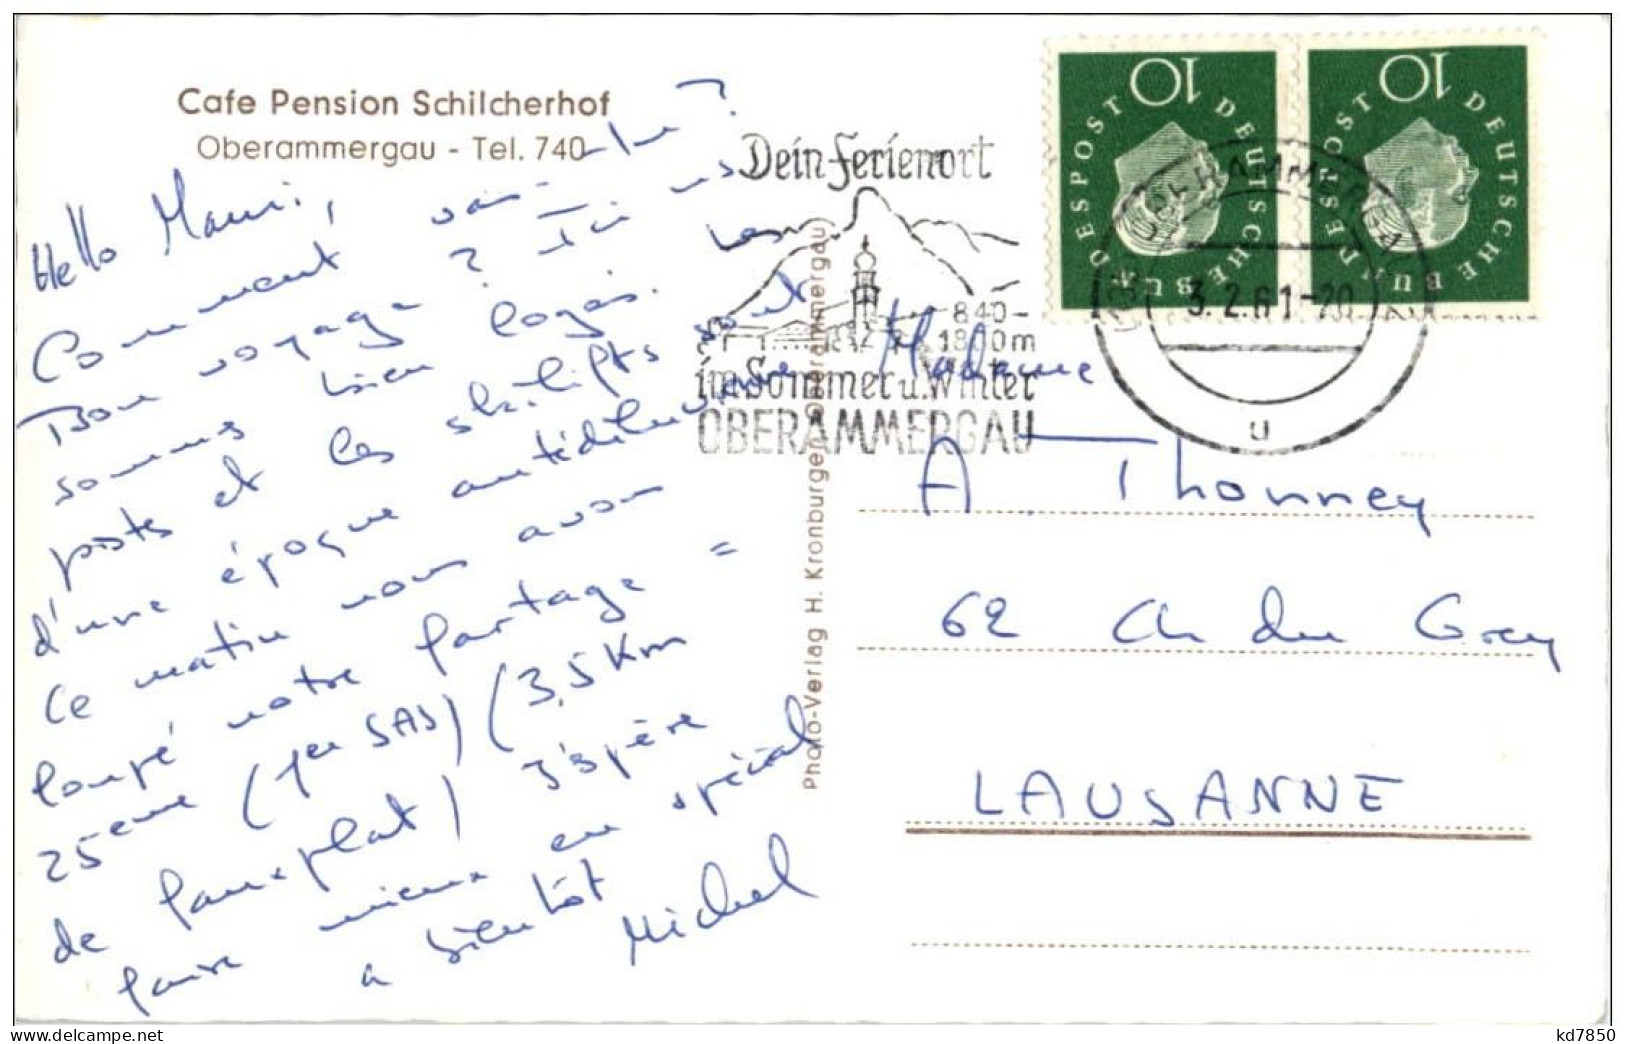 Cafe Pension Schilcherhof
Oberammergau - Tel. 740
Hello Mami,
Comment vas-te ?
Bon voyage ? Ici ns
sommes bien logés. Les
pistes et les ski-lifts sont
d'une époque antédiluvienne
Ce matin nous avons
loupé notre partage =
25ème (1er SAS) (3,5 Km
de faux-plat) J'espère
faire mieux en spécial
a bientôt
Michel
Photo-Verlag H. Kronburger, Oberammergau
Dein Ferienort
840-
1800m
im Sommer u. Winter
OBERAMMERGAU
10
DEUTSCHE BUNDESPOST
10
DEUTSCHE BUNDESPOST
OBERAMMERGAU
3.2.61-20
u
Madame
A Thonney
62 Ch du Grey
LAUSANNE
www.delcampe.net
kd7850